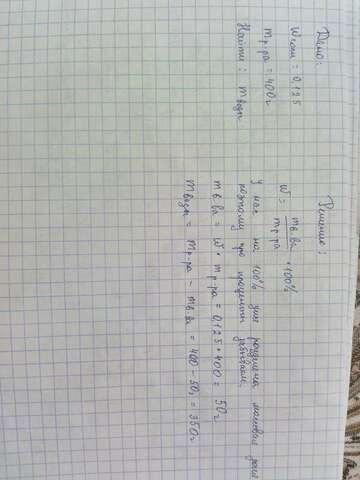 Дано:
Wсоли = 0,125
mр-ра = 400г
Найти: mводы
Решение:
W = mв.ва / mр-ра · 100%
У нас на 100% уже разделена массовая доля
поэтому про проценты забываем.
mв.ва = W · mр-ра = 0,125 · 400 = 50г
mводы = mр-ра - mв.ва = 400 - 50, = 350г